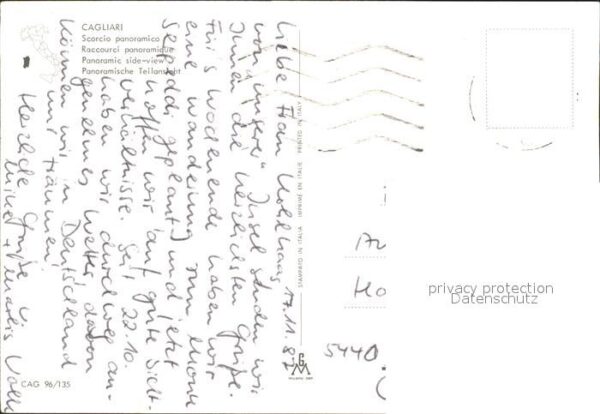 CAGLIARI
Scorcio panoramico
Raccourci panoramique
Panoramic side-view
Panoramische Teilansicht
Liebe Frau 17.11.87
von unserer Insel senden wir
Ihnen die herzlichsten Grüße.
Für's Wochenende haben wir
eine Wanderung zum Monte
Serpeddi geplant und jetzt
hoffen wir auf gute Sicht-
verhältnisse. Seit 22.10.
haben wir durchweg an-
genehmes Wetter, davon
können wir in Deutschland
nur träumen.
Herzliche Grüße
STAMPATO IN ITALIA IMPRIMÉ EN ITALIE PRINTED IN ITALY
5440
privacy protection
Datenschutz
CAG 96/135